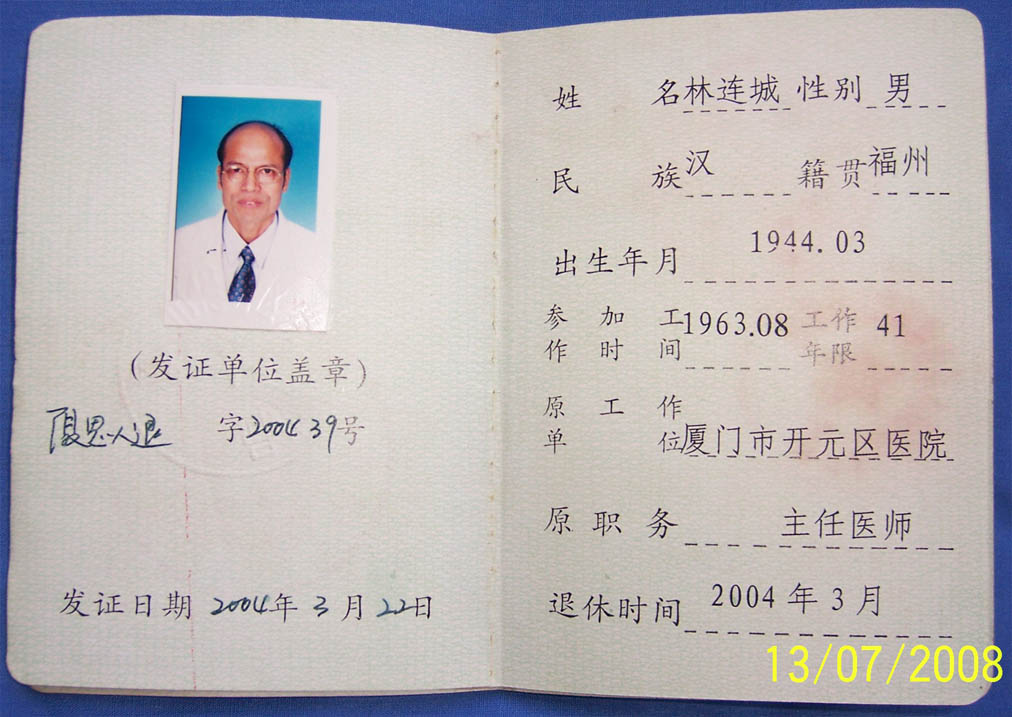 (发证单位盖章)
厦思人退 字2004 39号
发证日期 2004年3月22日
姓 名林连城 性别 男
民 族汉 籍贯福州
出生年月 1944.03
参加工作时间1963.08 工作年限 41
原工作单位厦门市开元区医院
原职务 主任医师
退休时间 2004年3月
13/07/2008